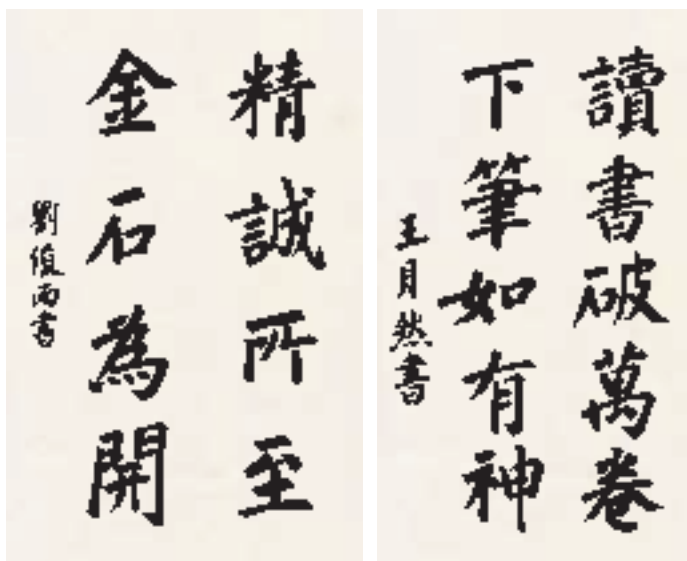 精誠所至
金石為開
劉俊雨書
讀書破萬卷
下筆如有神
王月然書